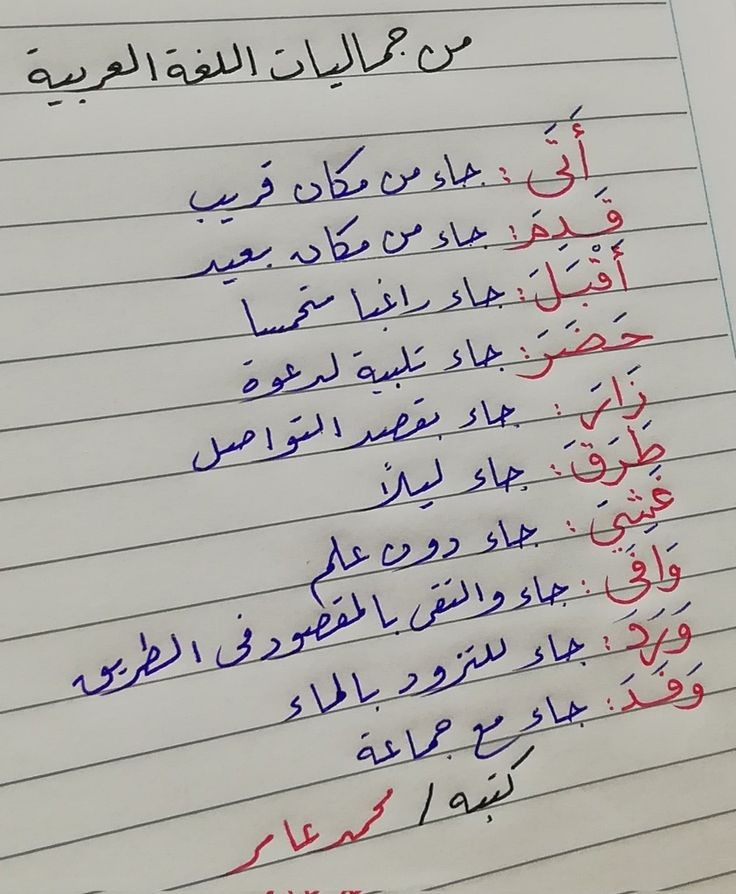 من جماليات اللغة العربية
أَتَى : جاء من مكان قريب
قَدِمَ : جاء من مكان بعيد
أَقْبَلَ : جاء راغبا متحمسا
حَضَرَ : جاء تلبية لدعوة
زَارَ : جاء بقصد التواصل
طَرَقَ : جاء ليلاً
غَشِيَ : جاء دون علم
وَافَى : جاء والتقى بالمقصود فى الطريق
وَرَدَ : جاء للتزود بالماء
وَفَدَ : جاء مع جماعة
كتبه / محمد عامر